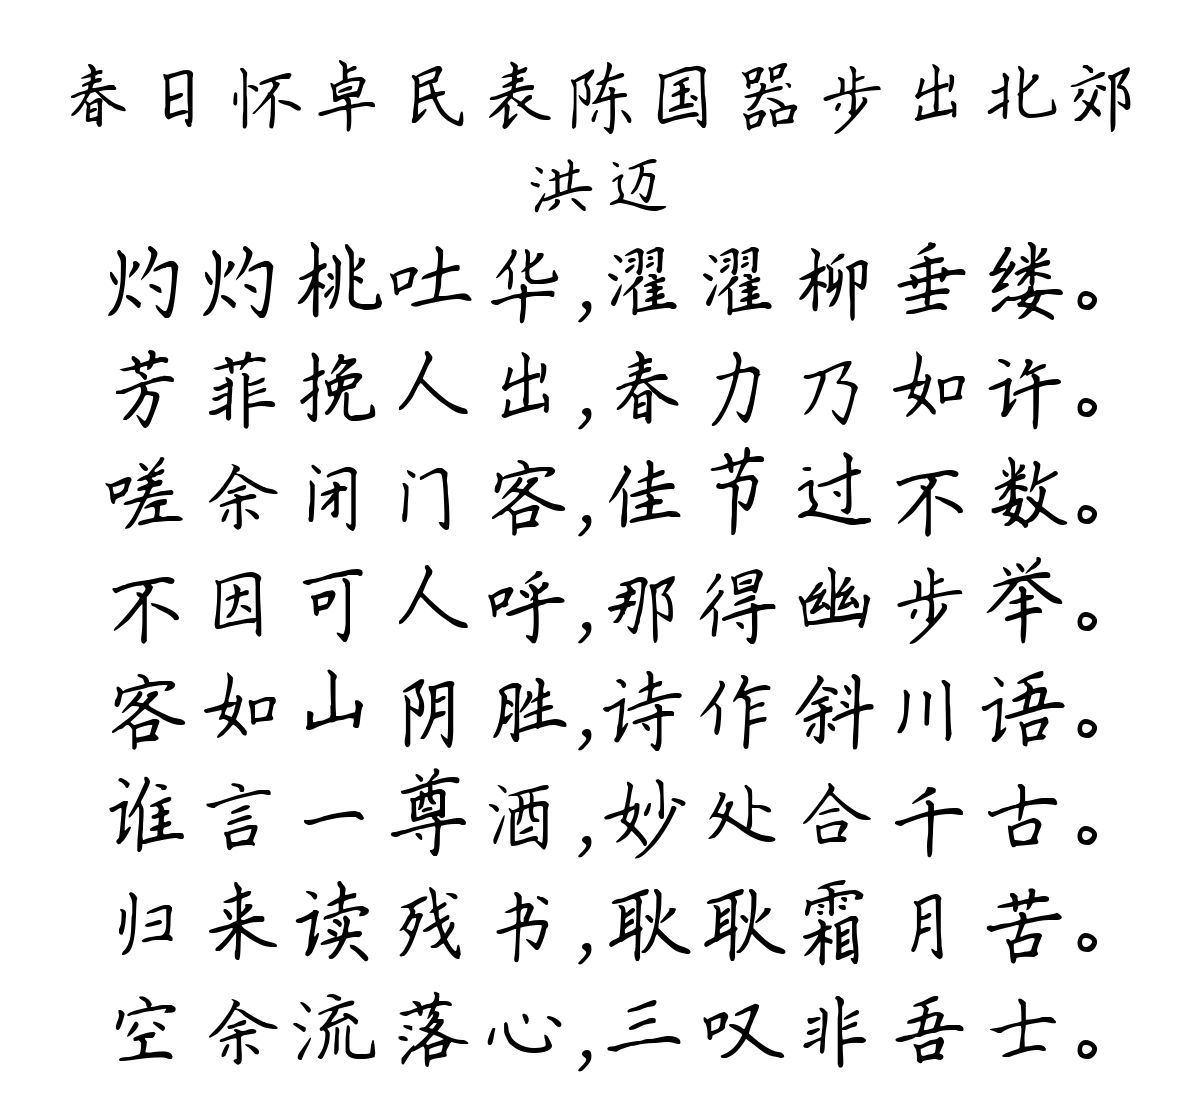 春日怀卓民表陈国器步出北郊
洪迈
灼灼桃吐华,濯濯柳垂缕。
芳菲挽人出,春力乃如许。
嗟余闭门客,佳节过不数。
不因可人呼,那得幽步举。
客如山阴胜,诗作斜川语。
谁言一尊酒,妙处合千古。
归来读残书,耿耿霜月苦。
空余流落心,三叹非吾士。